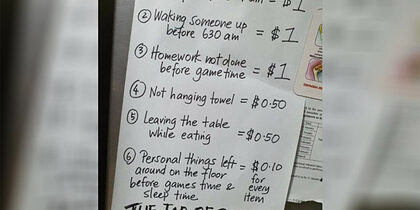 = $1
② Waking someone up
before 630 am = $1
③ Homework not done
before gametime = $1
④ Not hanging towel = $0.50
⑤ Leaving the table
while eating = $0.50
⑥ Personal things left = $0.10
around on the floor for
before games time & every
sleep time item